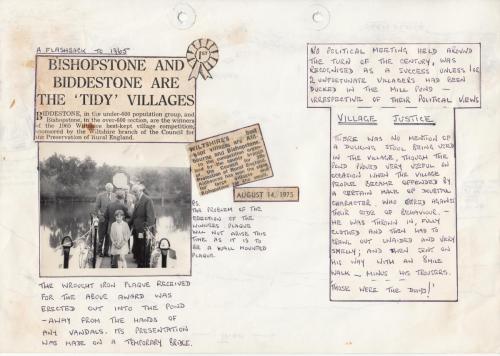 A FLASHBACK TO 1965
1ST
BISHOPSTONE AND
BIDDESTONE ARE
THE 'TIDY' VILLAGES
BIDDESTONE, in the under-600 population group, and
Bishopstone, in the over-600 section, are the winners
of the 1965 Wiltshire best-kept village competition,
sponsored by the Wiltshire branch of the Council for
the Preservation of Rural England.
THE WROUGHT IRON PLAQUE RECEIVED
FOR THE ABOVE AWARD WAS
ERECTED OUT INTO THE POND
- AWAY FROM THE HANDS OF
ANY VANDALS. ITS PRESENTATION
WAS MADE ON A TEMPORARY BRIDGE.
WILTSHIRE'S
best kept villages are
and Bishopstone,
the competition
AUGUST 14, 1975
PS.
THE PROBLEM OF THE
ERECTION OF THE
WINNERS PLAQUE
WILL NOT ARISE THIS
TIME AS IT IS TO
BE A WALL MOUNTED
PLAQUE.
NO POLITICAL MEETING HELD AROUND
THE TURN OF THE CENTURY, WAS
RECOGNISED AS A SUCCESS UNLESS 1 OR
2 UNFORTUNATE VILLAGERS HAD BEEN
DUCKED IN THE MILL POND -
IRRESPECTIVE OF THEIR POLITICAL VIEWS
VILLAGE JUSTICE
THERE WAS NO MENTION OF
A DUCKING STOOL BEING USED
IN THE VILLAGE, THOUGH THE
POND PROVED VERY USEFUL ON
OCCASION WHEN THE VILLAGE
PEOPLE BECAME OFFENDED BY
A CERTAIN MALE OF DOUBTFUL
CHARACTER, WHO ERRED AGAINST
THEIR CODE OF BEHAVIOUR. -
HE WAS THROWN IN, FULLY
CLOTHED AND THEN HAD TO
CRAWL OUT UNAIDED AND VERY
SMELLY; AND THEN SENT ON
HIS WAY WITH AN 8MILE
WALK - MINUS HIS TROUSERS.
THOSE WERE THE DAYS!!